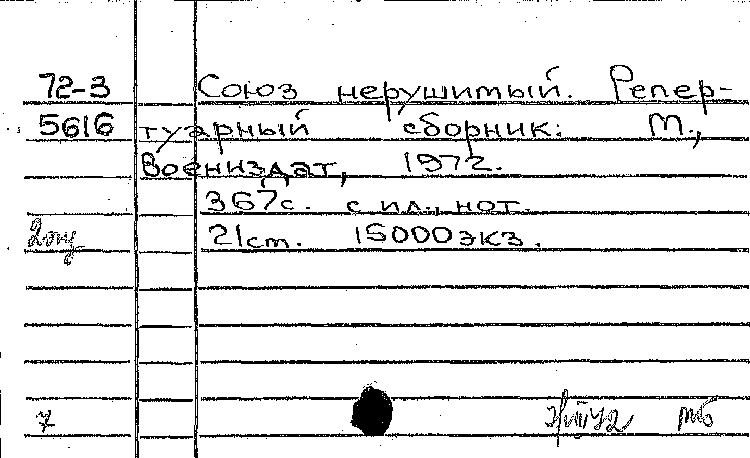 72-3 Союз нерушимый. Репер-
5616 туарный сборник. М.,
Воениздат, 1972.
367с. с ил., нот.
21см. 15000экз.
7